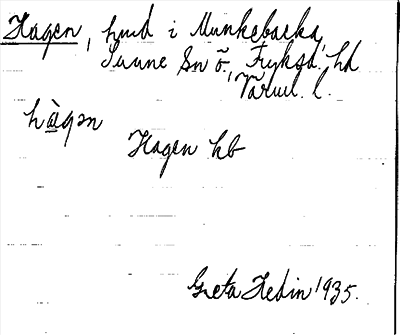 Hagen, hmd i Munkebacka,
Sunne sn ö., Fryksd. hd
Värml. l.
hàgən
Hagen kb
Greta Hedin 1935.